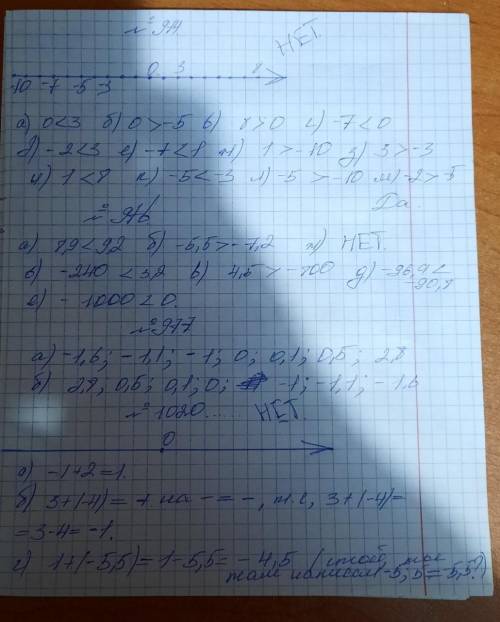 № 974
НЕТ.
0 3 8
-10 -7 -5 -3
а) 0<3 б) 0>-5 в) 8>0 г) -7<0
д) -2<3 е) -7<8 ж) 1>-10 з) 3>-3
и) 1<8 к) -5<-3 л) -5 > -10 м) -2>-5
Да.
№ 976
а) 8,9<9,2 б) -6,5>-7,2 ж) НЕТ.
в) -240 <3,2 в) 4,5 > -800 д) -96,9<
-90,9
е) - 1000<0.
№ 977
а) -1,6; -1,1; -1; 0; 0,1; 0,5; 2,8
б) 2,8; 0,5; 0,1; 0; -1; -1,1; -1,6
№ 1020...... НЕТ.
0
а) -1+2=1.
б) 3+(-4)= + на - = -, т.е, 3+(-4)=
=3-4=-1.
г) 1+(-5,5)=1-5,5= -4,5
написал -5;5=-5,5?)